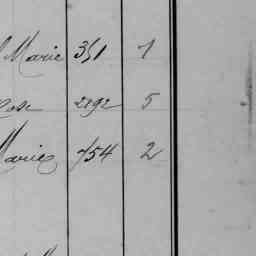 Marie 351 1
2892 5
Marie 754 2